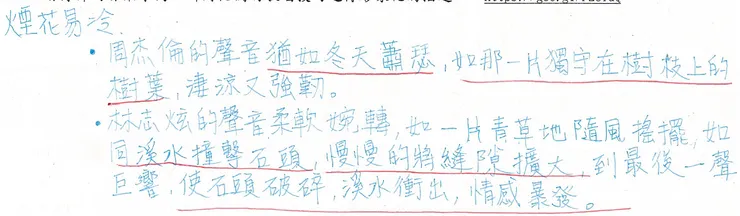 煙花易冷
• 周杰倫的聲音猶如冬天蕭瑟,如那一片獨守在樹枝上的
樹葉,淒涼又強韌。
• 林志炫的聲音柔軟婉轉,如一片青草地隨風搖擺,如
同溪水撞擊石頭,慢慢的將縫隙擴大,到最後一聲
巨響,使石頭破碎,溪水衝出,情感暴發。